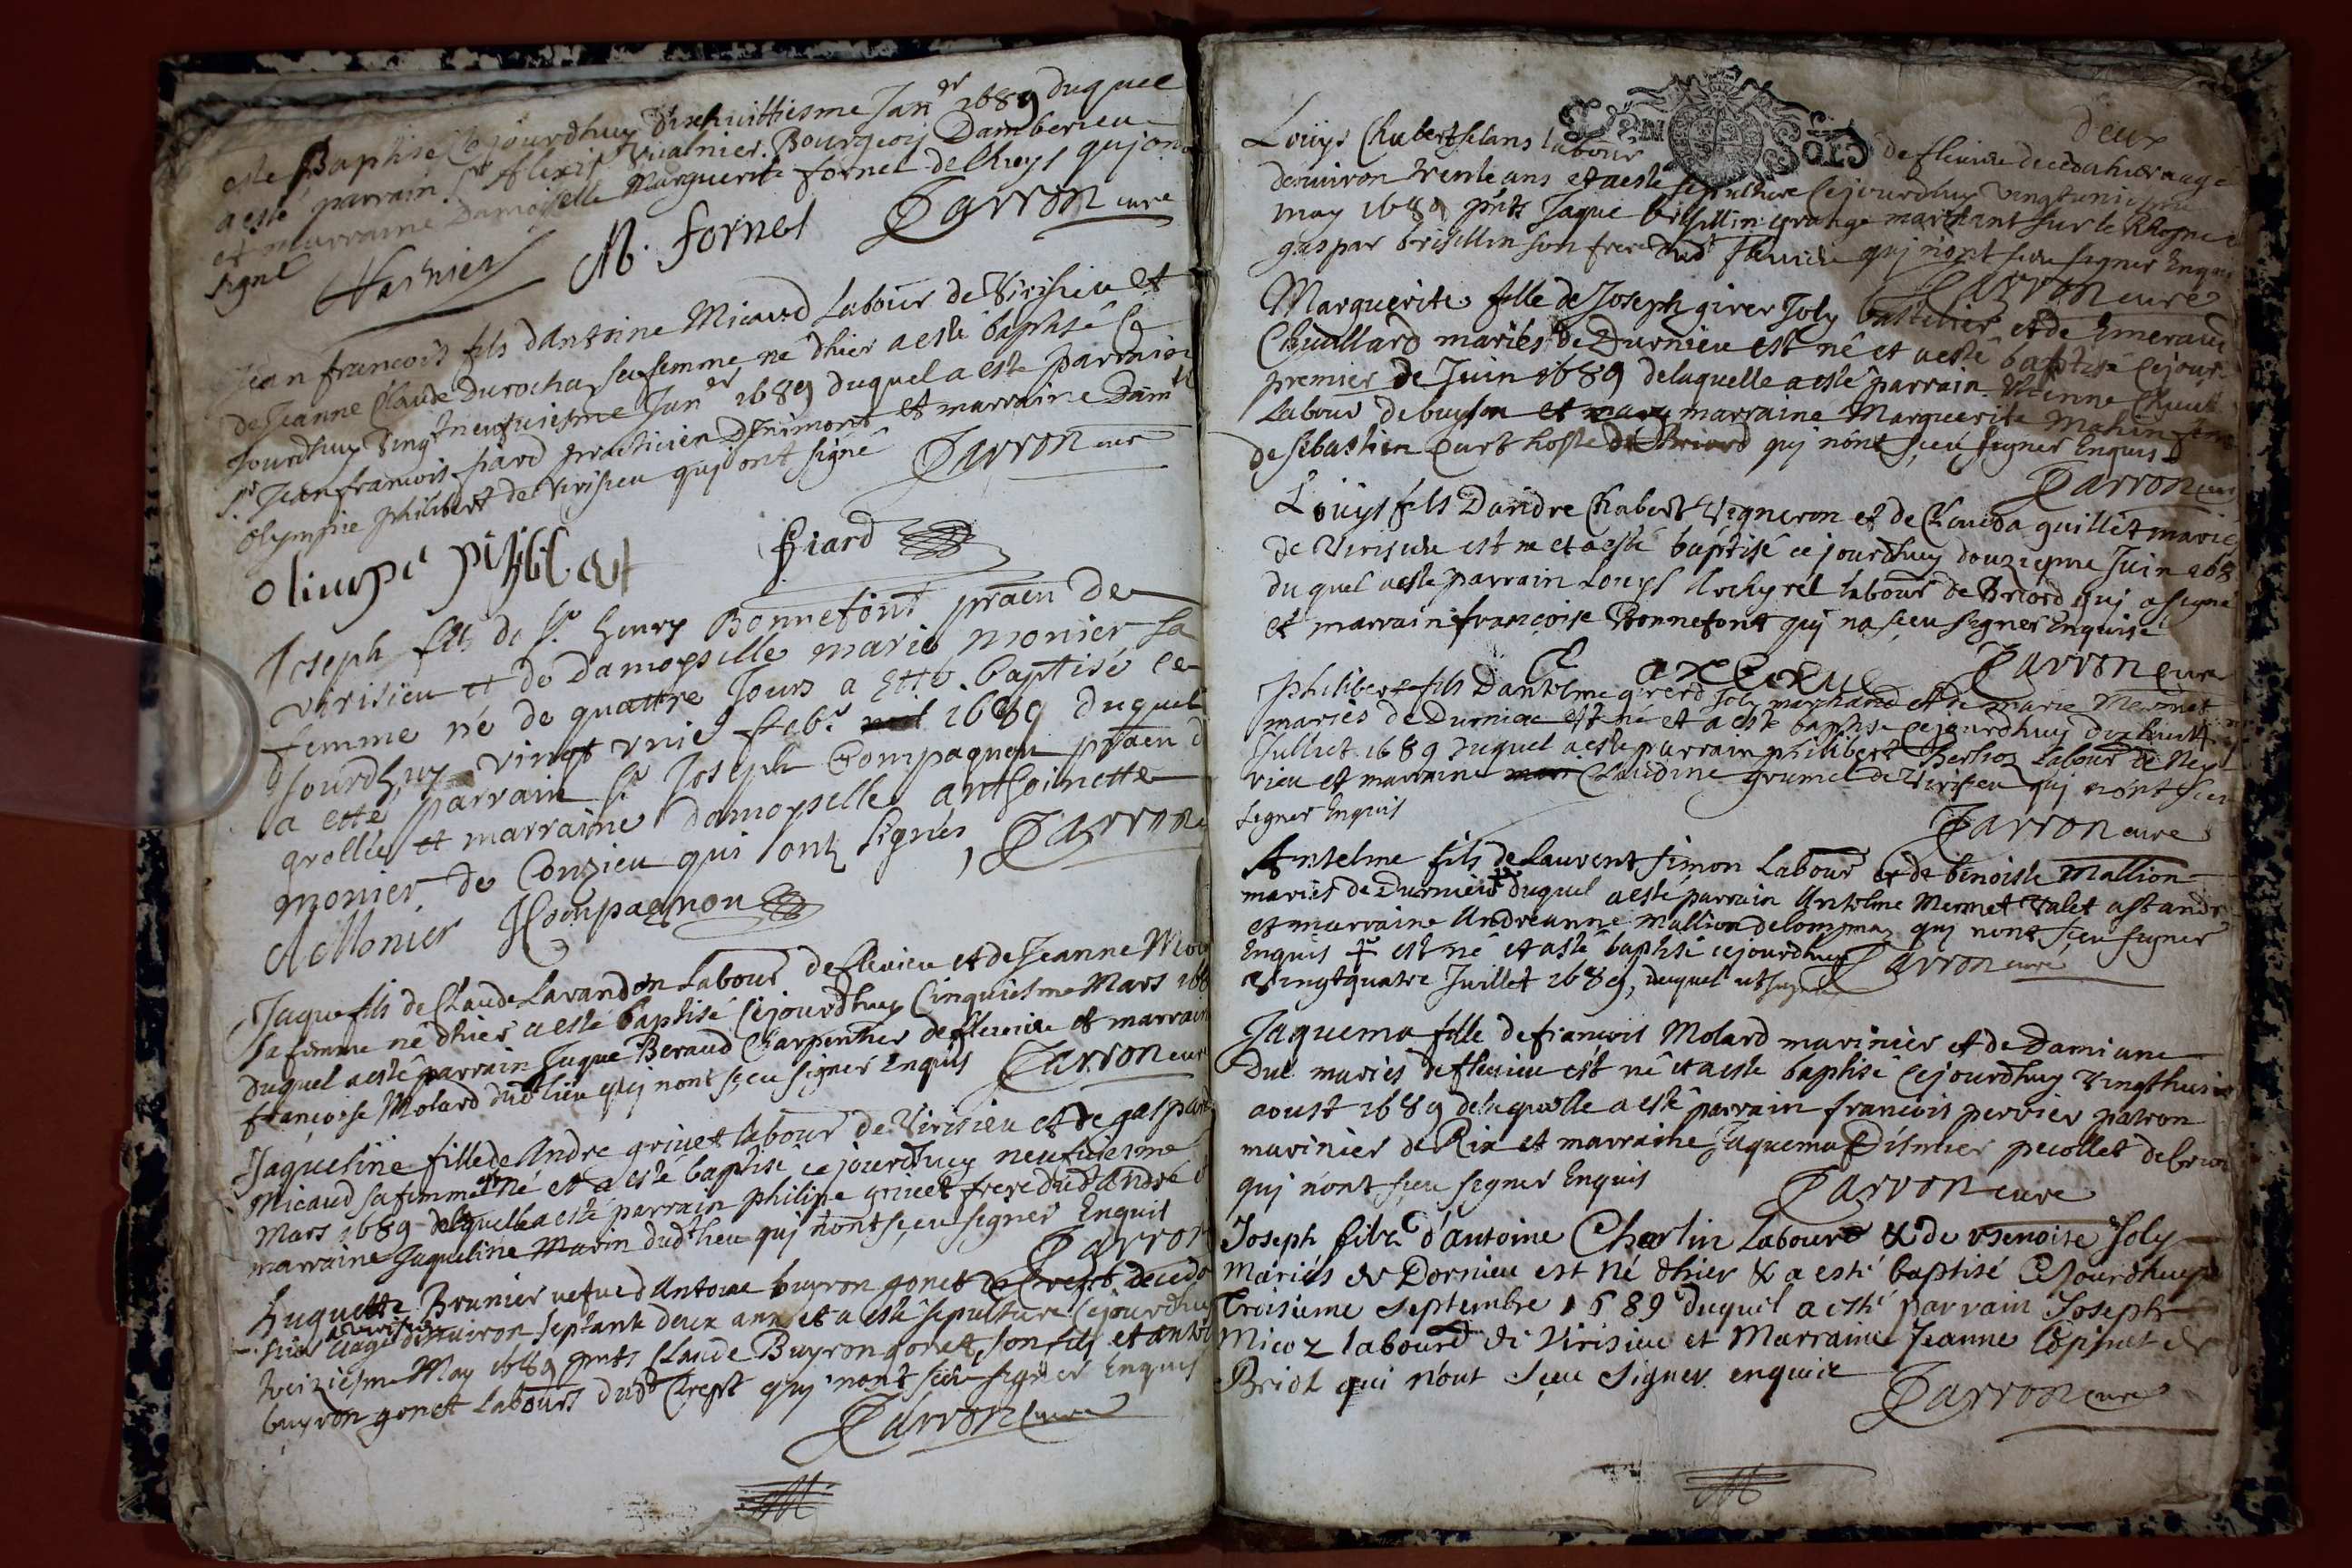 este Baptisé Cejourdhuy dixhuittiesme Janer 1689 duquel
a esté parrain Sr Alexis Bourgeois Damberieu
et marraine Damoiselle Marguerite fornet de Chuys qui ont
signé
M. fornet
Jarron curé
Jean francois fils dAntoine Micaud Labour de Virisieu et
de Jeanne Claude Durochat sa femme né dhier a esté baptisé Ce
Jourdhuy Vingtneufuiesme Janer 1689 duquel a esté parrain
Sr Jean francois fiard practicien DInimont et marraine Damlle
Olympie philibert de Virisieu qui ont signé
Jarron cure
olimpe
fiard
Joseph fils de Sr henry Bonnefont praen de
Virisieu et de Damoyselle marie monier sa
femme né de quattre Jours a etté baptisé ce
Jourdhuy vingt vnie febr. 1689 duquel
a etté parrain Sr Joseph Compagnon praen d
grollée et marraine damoyselle anthoinette
monier de Conzieu qui ont signés
Jarron
A Monier JCompagnon
Jaque fils de Claude Lavandon Labour de fleuieu et de Jeanne
sa femme né dhier a esté baptisé Cejourdhuy Cinquiesme Mars 168
duquel a esté parrain Jaque Beraud Charpentier de fleuieu et marrain
françoise Molard dud lieu qui nont sçeu signer Enquis
Jarron curé
Jaqueline fille de Andre griuet labour de Virisieu et de gaspard
Micaud sa femme est né et a esté baptisé ce jourdhuy neufuiesme
Mars 1689 delaquelle a esté parrain philipe griuet frere dud Andre et
marraine Jaqueline Marin dud lieu qui nont sçeu signer Enquis
Jarron
huguette Brunier uefue dAntoine buyron gonet de Crept decedé
hier aagé denuiron septante deux ans et a esté sepulturé Cejourdhuy
treiziesme May 1689 pnts Claude Buyron gonet son fils et antoi
buyron gonet Labours dud Crept qui nont sceu signer Enquis
Jarron curé
deux
Louys Chabert labour de fleuieu decedé hier aagé
denuiron trente ans et a esté sepulturé Cejourdhuy vingtuniesme
may 1689 pnts Jaque brisellin grange marchant sur le Rhosne et
gaspar brisellin son frere dud fleuieu qui nont sceu signer Enquis
Jarron curé
Marguerite fille de Joseph girer Joly bastelier et de Emeraud
Chuallard mariés de Durnieu est né et a esté baptisé Cejour
premier de Juin 1689 delaquelle a esté parrain
Labour de buysson et marraine Marguerite
de sebastien Curt hoste de Briord qui nont sçeu signer Enquis
Jarron curé
Louys fils Dandre Chabert Vigneron et de Clauda quillet mariés
de Virisieu est né et a esté baptisé ce jourdhuy douziesme Juin 168
duquel a esté parrain Louys labour de Briord qui a signé
et marraine françoise Bonnefont qui na sceu signer Enquise
Jarron Curé
philibert fils Dantelme girerd Joly marchand et de marie Mermet
mariés de Durnieu est né et a esté baptisé cejourdhuy dixhuict
Julliet 1689 duquel a esté parrain philibert Berlioz Labour de Ney
rieu et marraine Claudine grumel de Virisieu qui nont sceu
signer Enquis
Jarron curé
Antelme fils de Laurent simon Labour et de benoiste Mallion
mariés de Durnieu duquel a esté parrain Antelme Mermet valet a st andré
et marraine Andreanne mallion delompnaz qui nont sçeu signer
Enquis est né et a esté baptisé cejourdhuy Jarron curé
Vingtquatre Juillet 1689, duquel ut supra
Jaquema fille de françois Molard marinier et de Damiane
Duc mariés de fleuieu est né et a esté baptisé Cejourdhuy Vingthuict
aoust 1689 delaquelle a esté parrain francois perrier patron
marinier de Rix et marraine Jaquema Disnier pecollet de brior
qui nont sçeu signer Enquis
Jarron curé
Joseph filz d'antoine Charlin Labourd & de Benoite Joly
Mariés de Dornieu est Né dhier & a esté baptisé Cejourdhuy
troisieme Septembre 1689 duquel a esté parrain Joseph
Micoz labourd de Virisieu et Marraine Jeanne Copinet de
Briol qui n'ont sceu signer enquie
Jarron curé